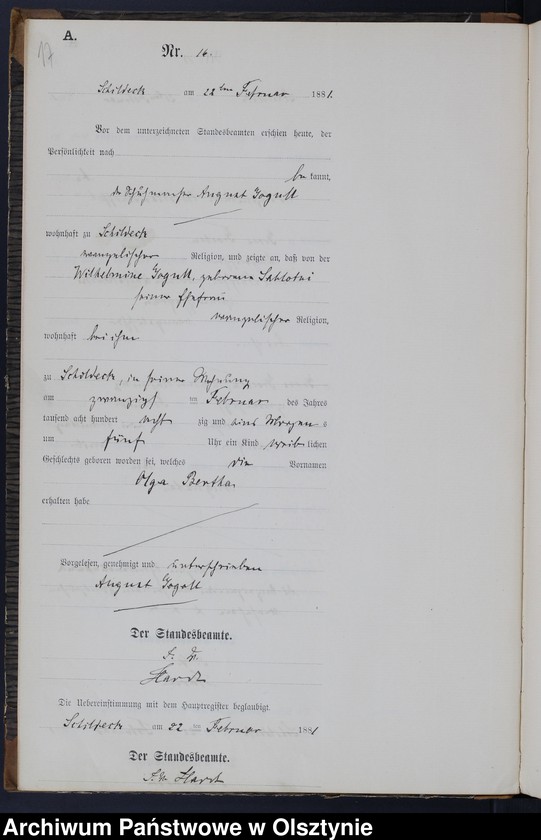 17
A.
Nr. 16.
Schildeck am 22ten Februar 1881.
Vor dem unterzeichneten Standesbeamten erschien heute, der
Persönlichkeit nach
bekannt,
der Schuhmacher August Jogoll
wohnhaft zu Schildeck
evangelischer Religion, und zeigte an, daß von der
Wilhelmine Jogoll, geborene Sablotni
seiner Ehefrau
evangelischer Religion,
wohnhaft bei ihm
zu Schildeck, in seiner Wohnung
am zwanzigst en Februar des Jahres
tausend acht hundert acht zig und eins Morgens
um fünf Uhr ein Kind weiblichen
Geschlechts geboren worden sei, welches die Vornamen
Olga Bertha
erhalten habe
Vorgelesen, genehmigt und unterschrieben
August Jogoll
Der Standesbeamte.
Hardt
Die Uebereinstimmung mit dem Hauptregister beglaubigt.
Schildeck am 22 ten Februar 1881
Der Standesbeamte.
Hardt
Archiwum Państwowe w Olsztynie